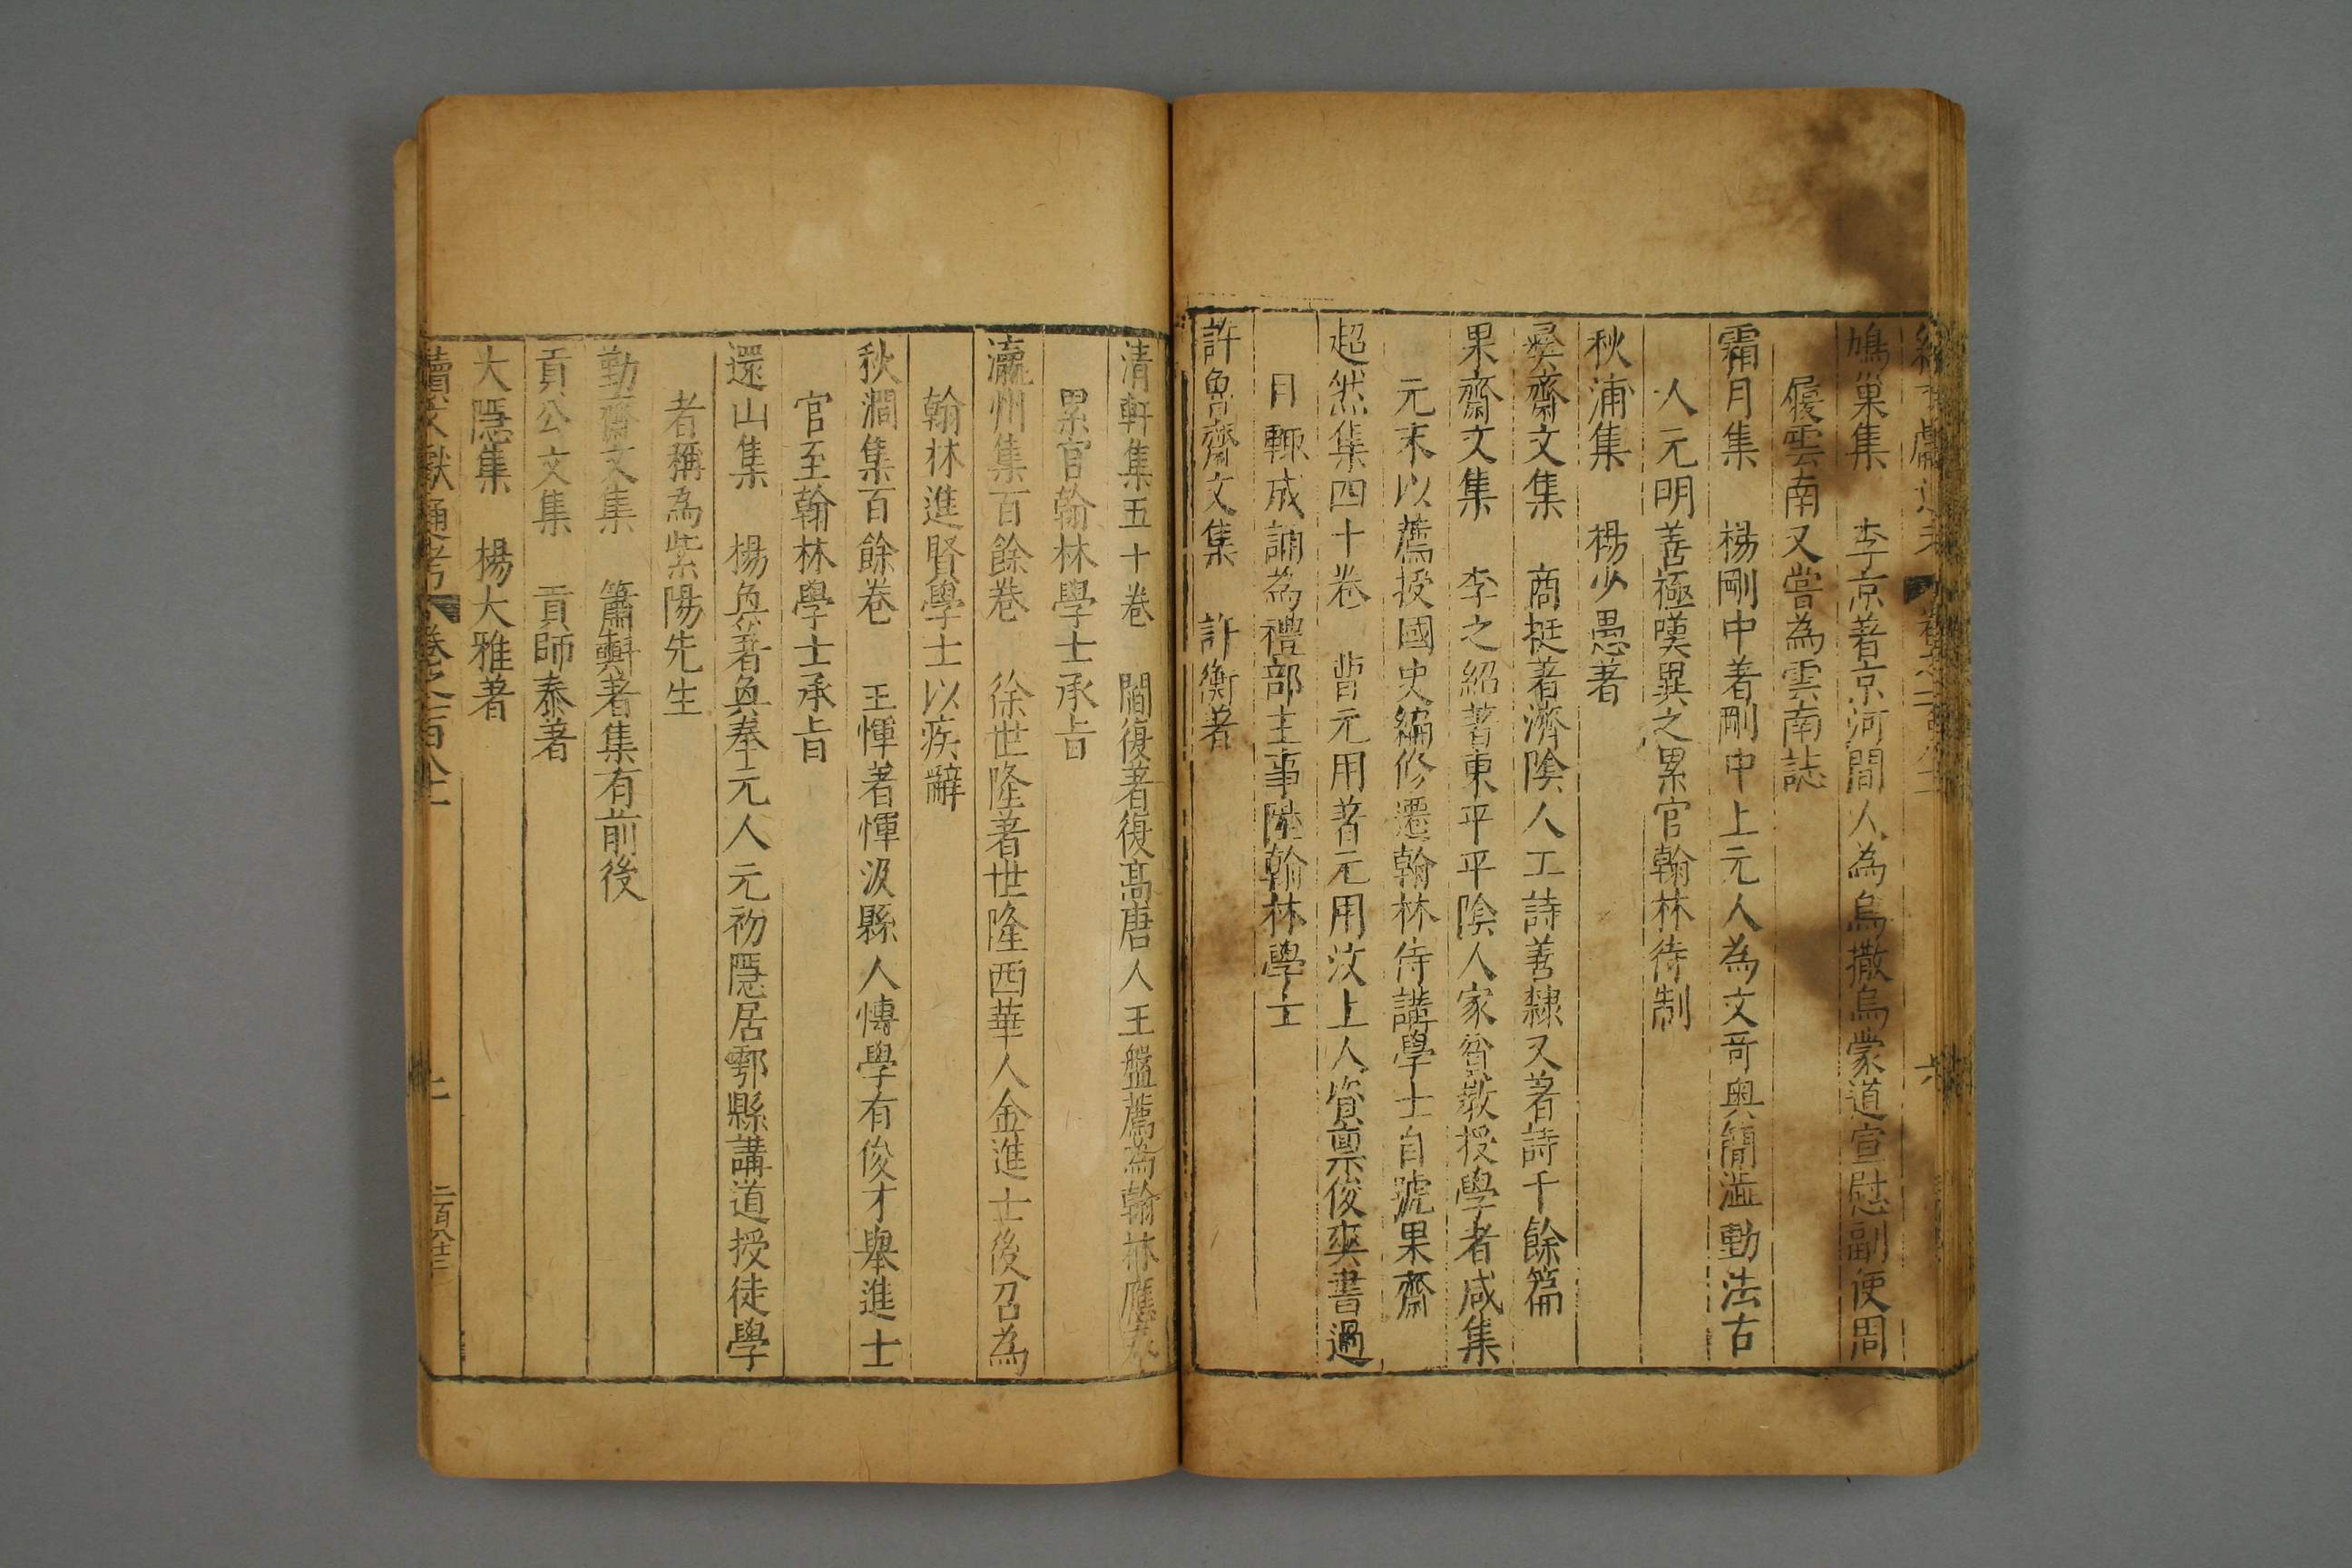 鳩巢集　李京著京河間人為烏撒烏蒙道宣慰副使周
履雲南又嘗為雲南誌
霜月集　楊剛中著剛中上元人為文奇奧簡澁動法古
人元明善極嘆異之累官翰林待制
秋浦集　楊少愚著
㬅齋文集　商挺著濟隂人工詩善隸又著詩千餘篇
果齋文集　李之紹著東平平隂人家貧敎授學者咸集
元末以薦授國史編修遷翰林侍講學士自號果齋
超然集四十卷　曹元用著元用汶上人資禀俊爽書過
目輒成誦為禮部主事陞翰林學士
許魯齋文集　許衡著
清軒集五十卷　閻復著復高唐人王盤薦為翰林應奉
累官翰林學士承旨
瀛州集百餘卷　徐世隆著世隆西華人金進士後召為
翰林進賢學士以疾辭
秋澗集百餘卷　王惲著惲汲縣人愽學有俊才舉進士
官至翰林學士承旨
還山集　楊奐著奐奉元人元初隱居鄠縣講道授徒學
者稱為紫陽先生
勤齋文集　簫㪺著集有前後
貢公文集　貢師泰著
大隱集　楊大雅著
續文獻通考　卷之一百八十　二百八十三